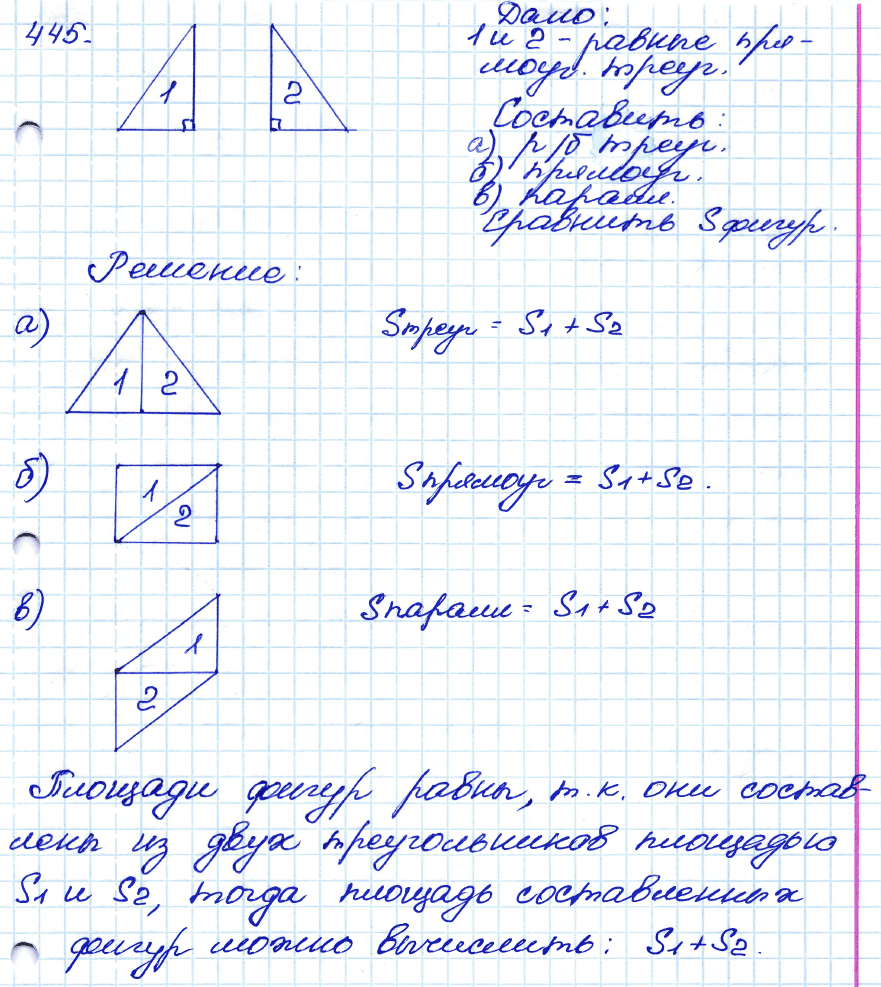 445.
1
2
Дано:
1 и 2 - равные пря-
моуг. треуг.
Составить:
а) р/б треуг.
б) прямоуг.
в) паралл.
Сравнить S фигур.
Решение:
а)
1 2
Sтреуг = S1 + S2
б)
1
2
Sпрямоуг = S1 + S2.
в)
1
2
Sпаралл = S1 + S2
Площади фигур равны, т.к. они состав-
лены из двух треугольников площадью
S1 и S2, тогда площадь составленных
фигур можно вычислить: S1 + S2.